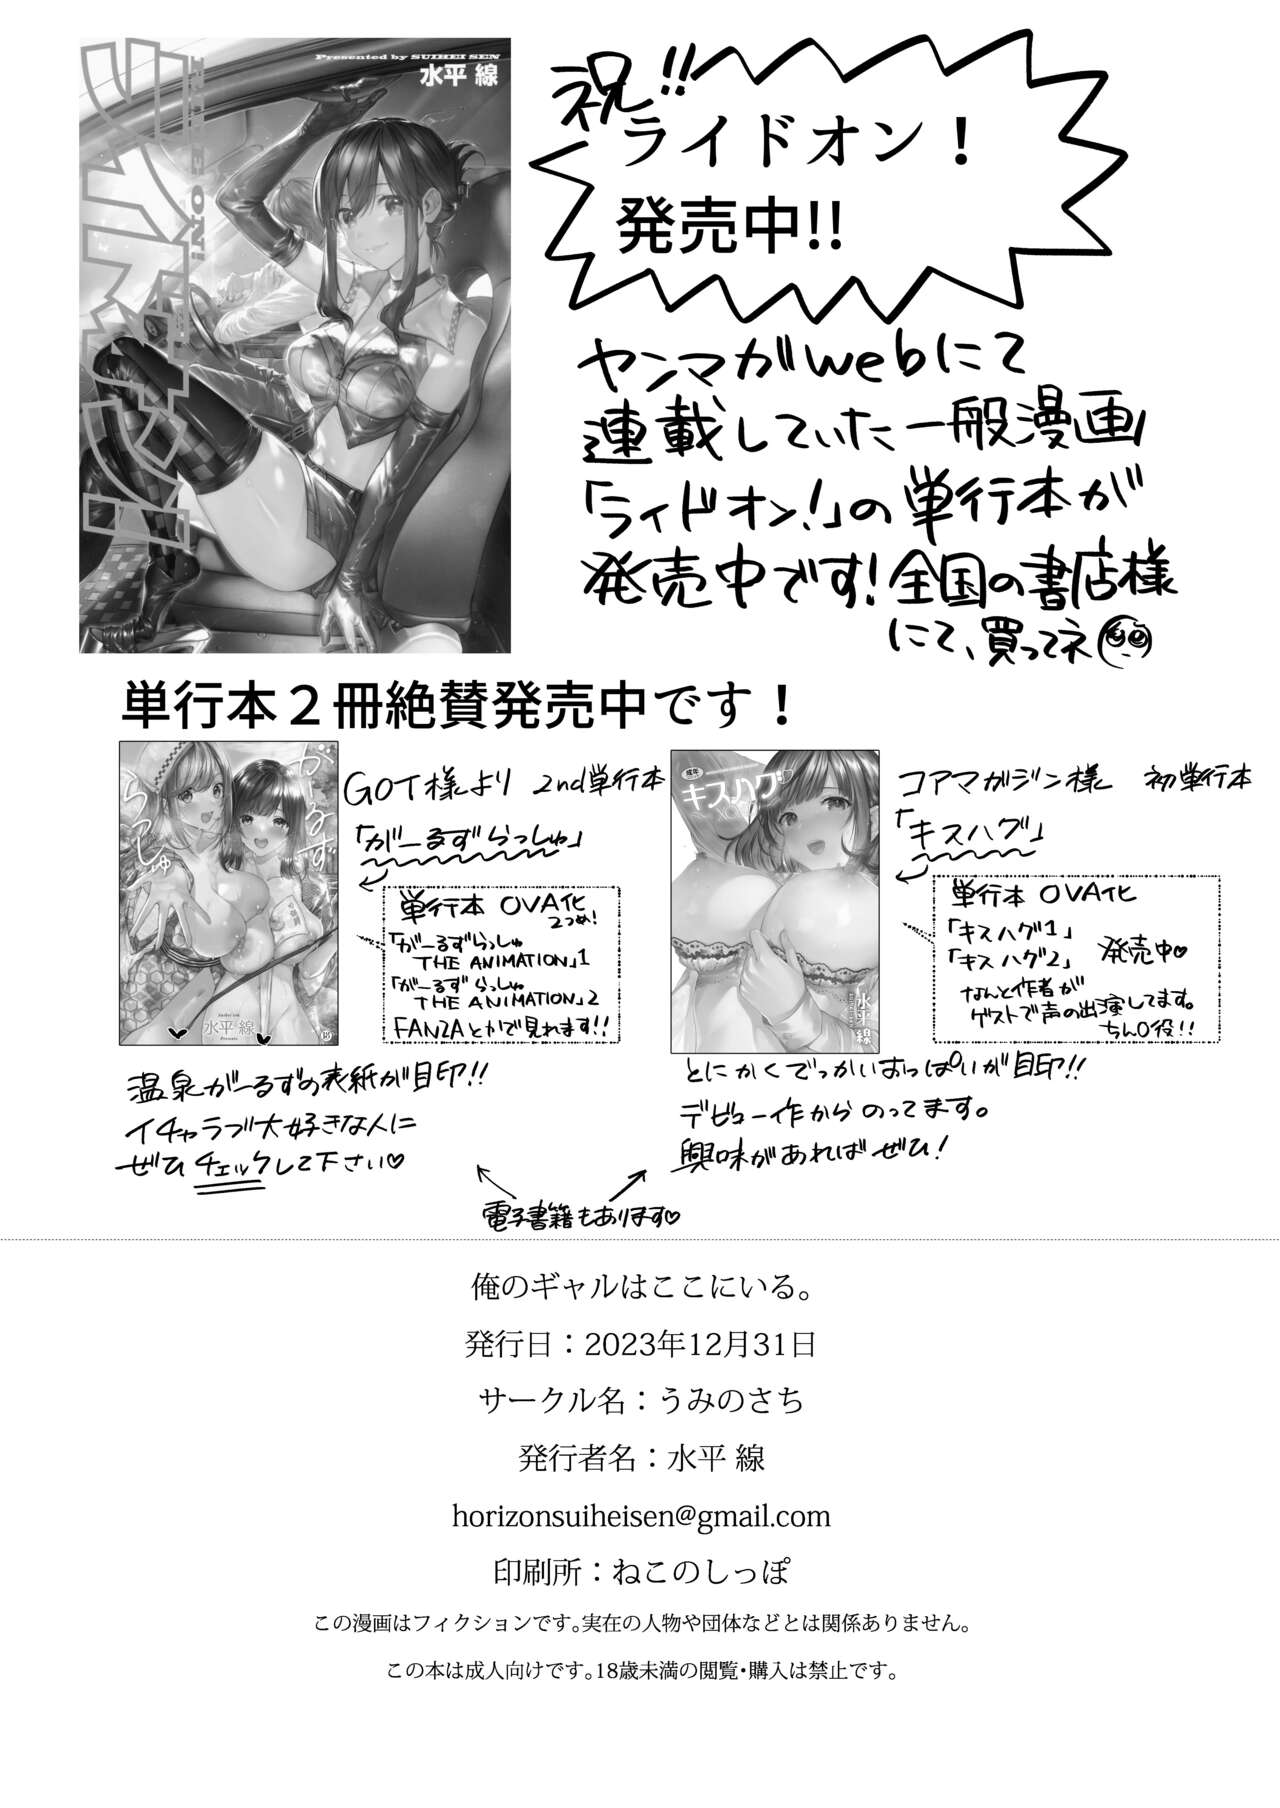 Presented by SUIHEI SEN
水平 線
RIDE ON!
ライドオン!
祝!!
ライドオン！
発売中!!
ヤンマガwebにて
連載していた一般漫画
「ライドオン!」の単行本が
発売中です!全国の書店様
にて、買ってネ
単行本２冊絶賛発売中です！
がーるず
らっしゅ
Suihei Sen
水平 線
Presents
GOT様より 2nd単行本
「がーるずらっしゅ」
単行本 OVA化
2つめ!
「がーるずらっしゅ
THE ANIMATION」1
「がーるずらっしゅ
THE ANIMATION」2
FANZAとかで見れます!!
温泉がーるずの表紙が目印!!
イチャラブ大好きな人に
ぜひチェックして下さい♡
成年
キスハグ
水平線
コアマガジン様 初単行本
「キスハグ」
単行本 OVA化
「キスハグ1」
「キスハグ2」 発売中♡
なんと作者が
ゲストで声の出演してます。
ちん○役!!
とにかくでっかいおっぱ○いが目印!!
デビュー作からのってます。
興味があればぜひ!
電子書籍もあります♡
俺のギャルはここにいる。
発行日：2023年12月31日
サークル名：うみのさち
発行者名：水平 線
horizonsuiheisen@gmail.com
印刷所：ねこのしっぽ
この漫画はフィクションです。実在の人物や団体などとは関係ありません。
この本は成人向けです。18歳未満の閲覧・購入は禁止です。